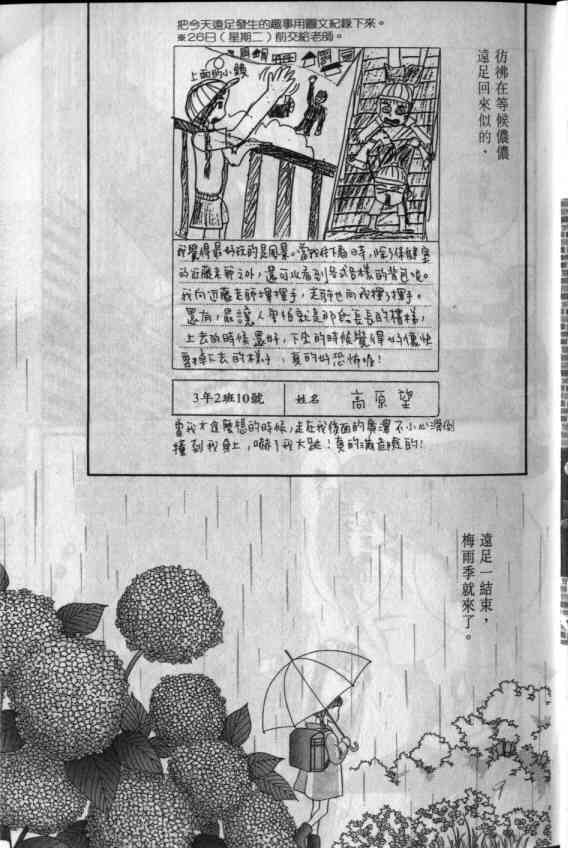 彷彿在等候儂儂
遠足回來似的，
把今天遠足發生的趣事用圖文紀錄下來。
※26日（星期二）前交給老師。
上面的小鏡
我覺得最好玩的是風景。當我往下看時，除了保健室
的近藤老師之外，還可以看到各式各樣的背景喔。
我向近藤老師揮揮手，老師也向我揮了揮手。
還有，最讓人害怕就是那長長的樓梯，
上去的時候還好，下來的時候覺得好像快
要掉下去的樣子，真的好恐怖喔！
3年2班10號
姓名
高原望
當我才在這麼想的時候，走在我後面的廣澤不小心滑倒
撞到我身上，嚇了我大跳！真的滿危險的！
遠足一結束，
梅雨季就來了。